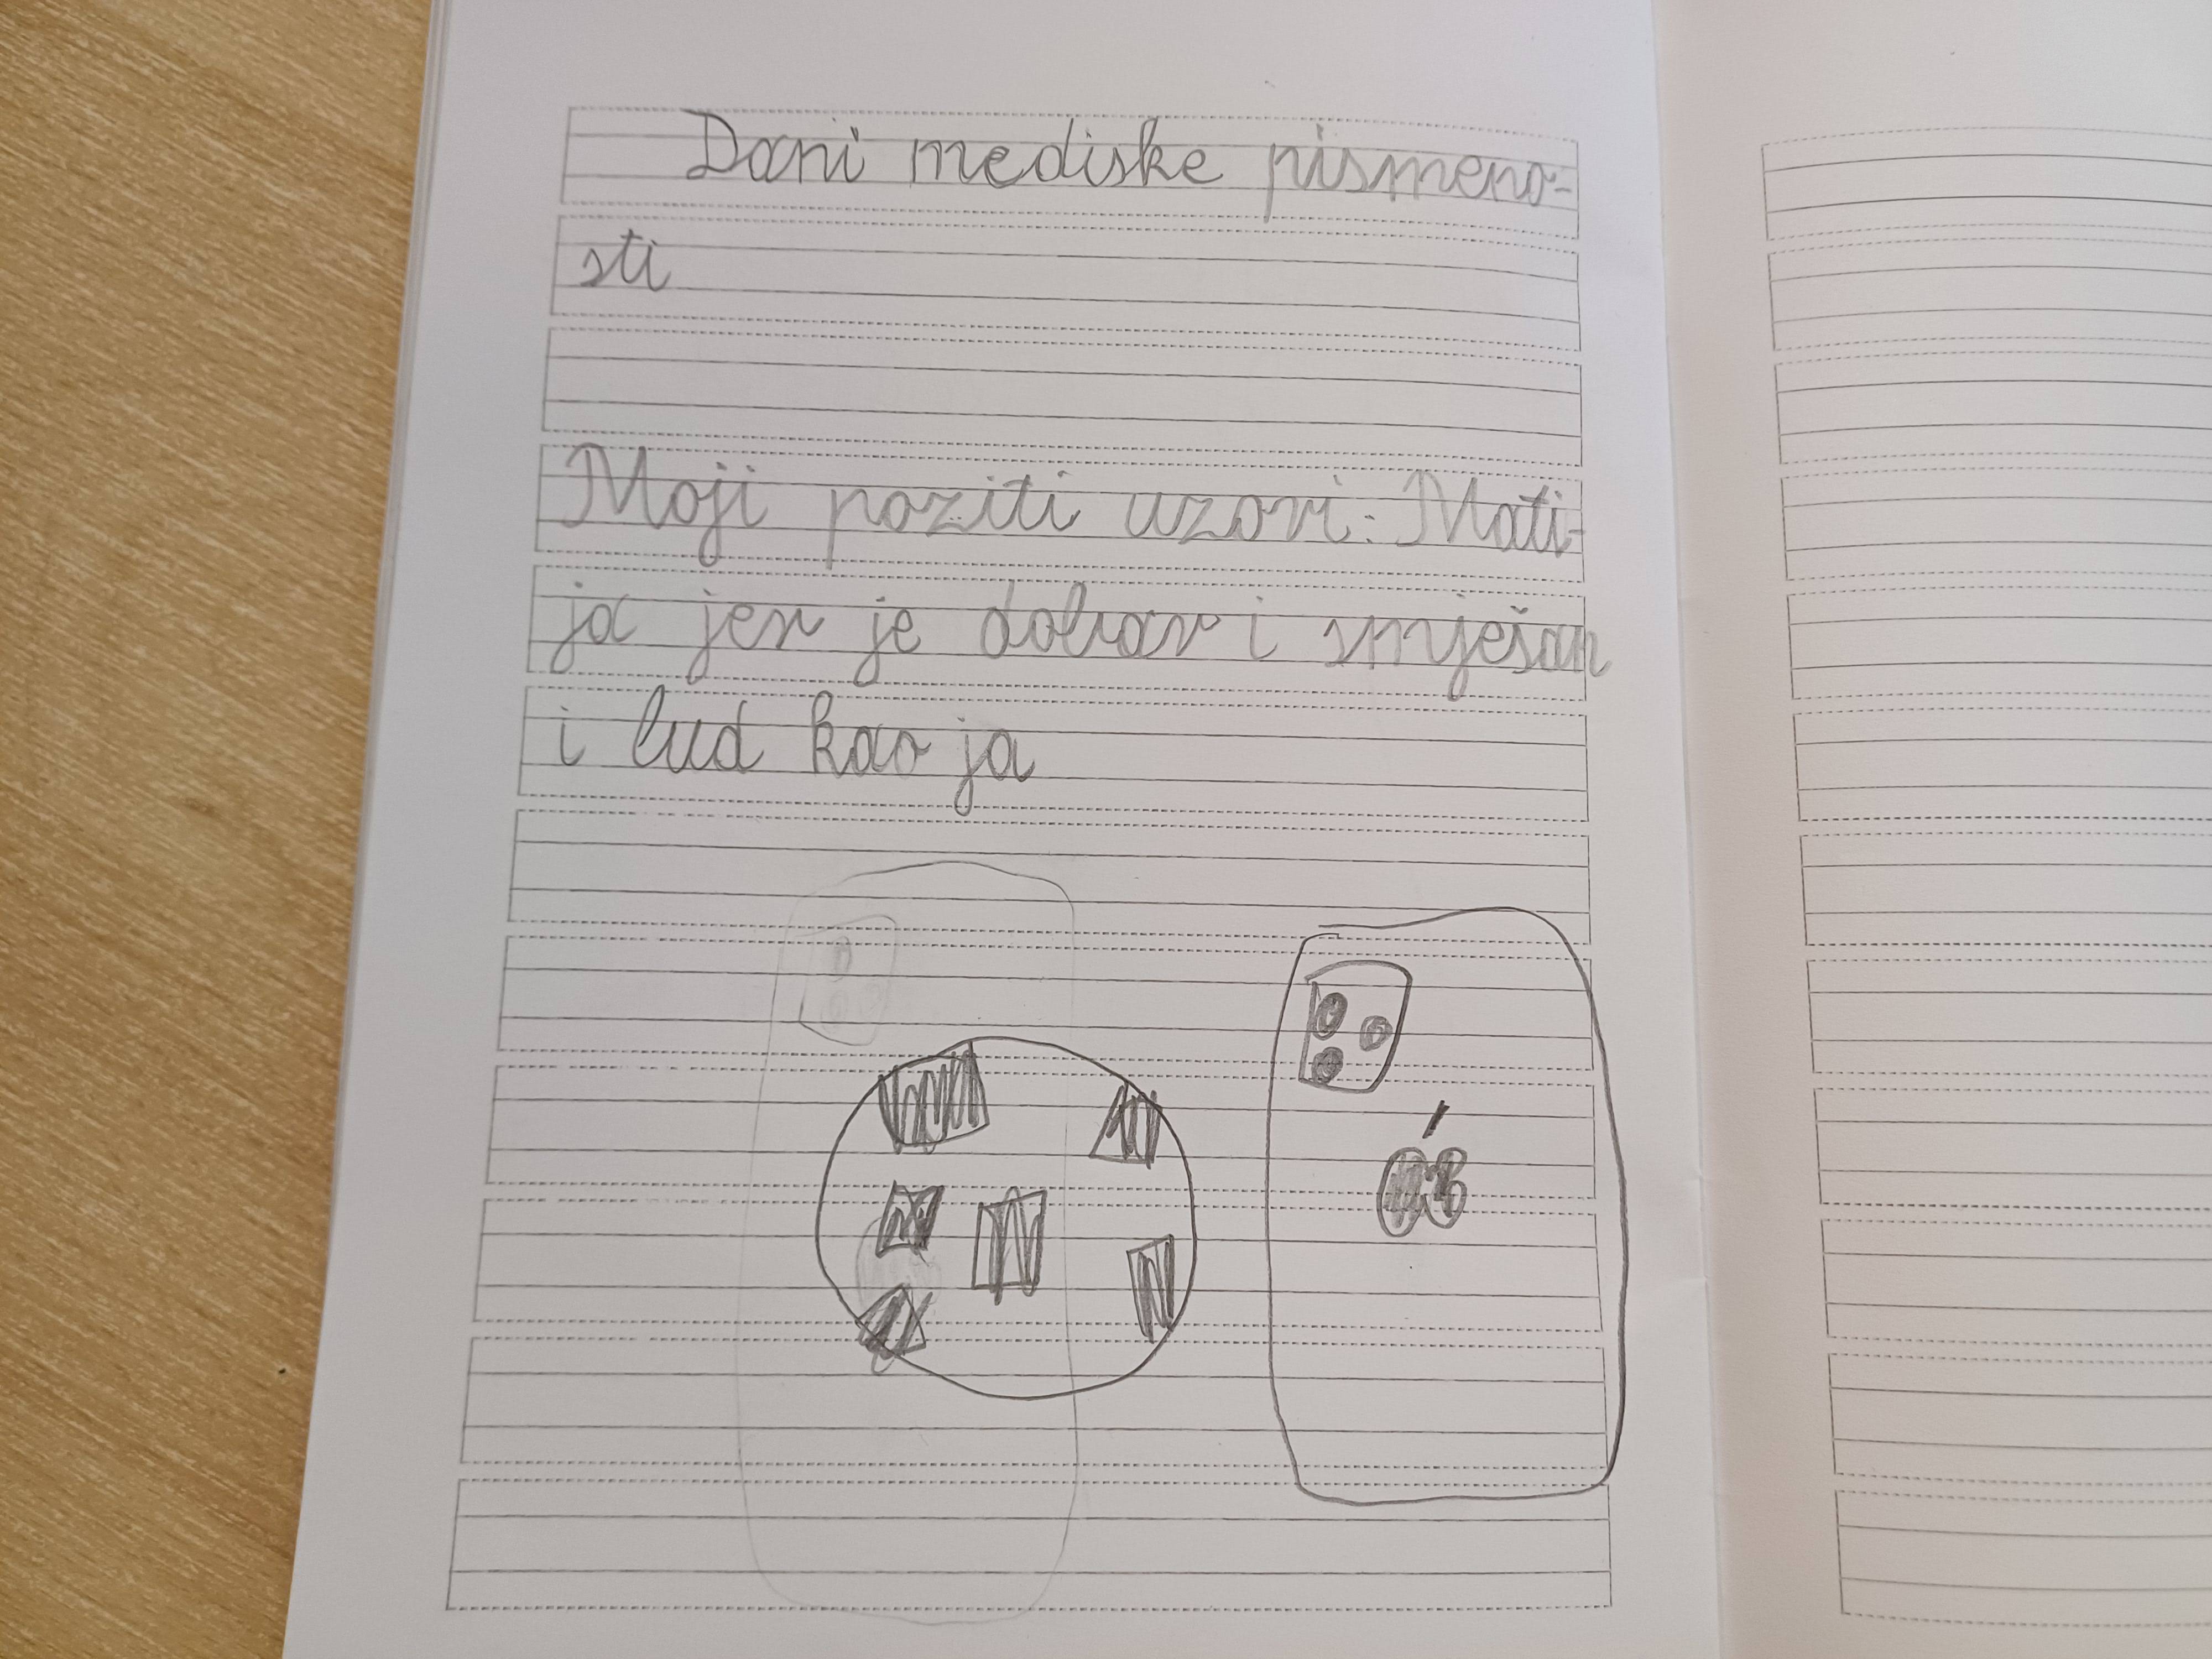 Dani mediske pismeno-
sti
Moji poziti uzori: Mati-
ja jer je dobar i smješan
i lud kao ja